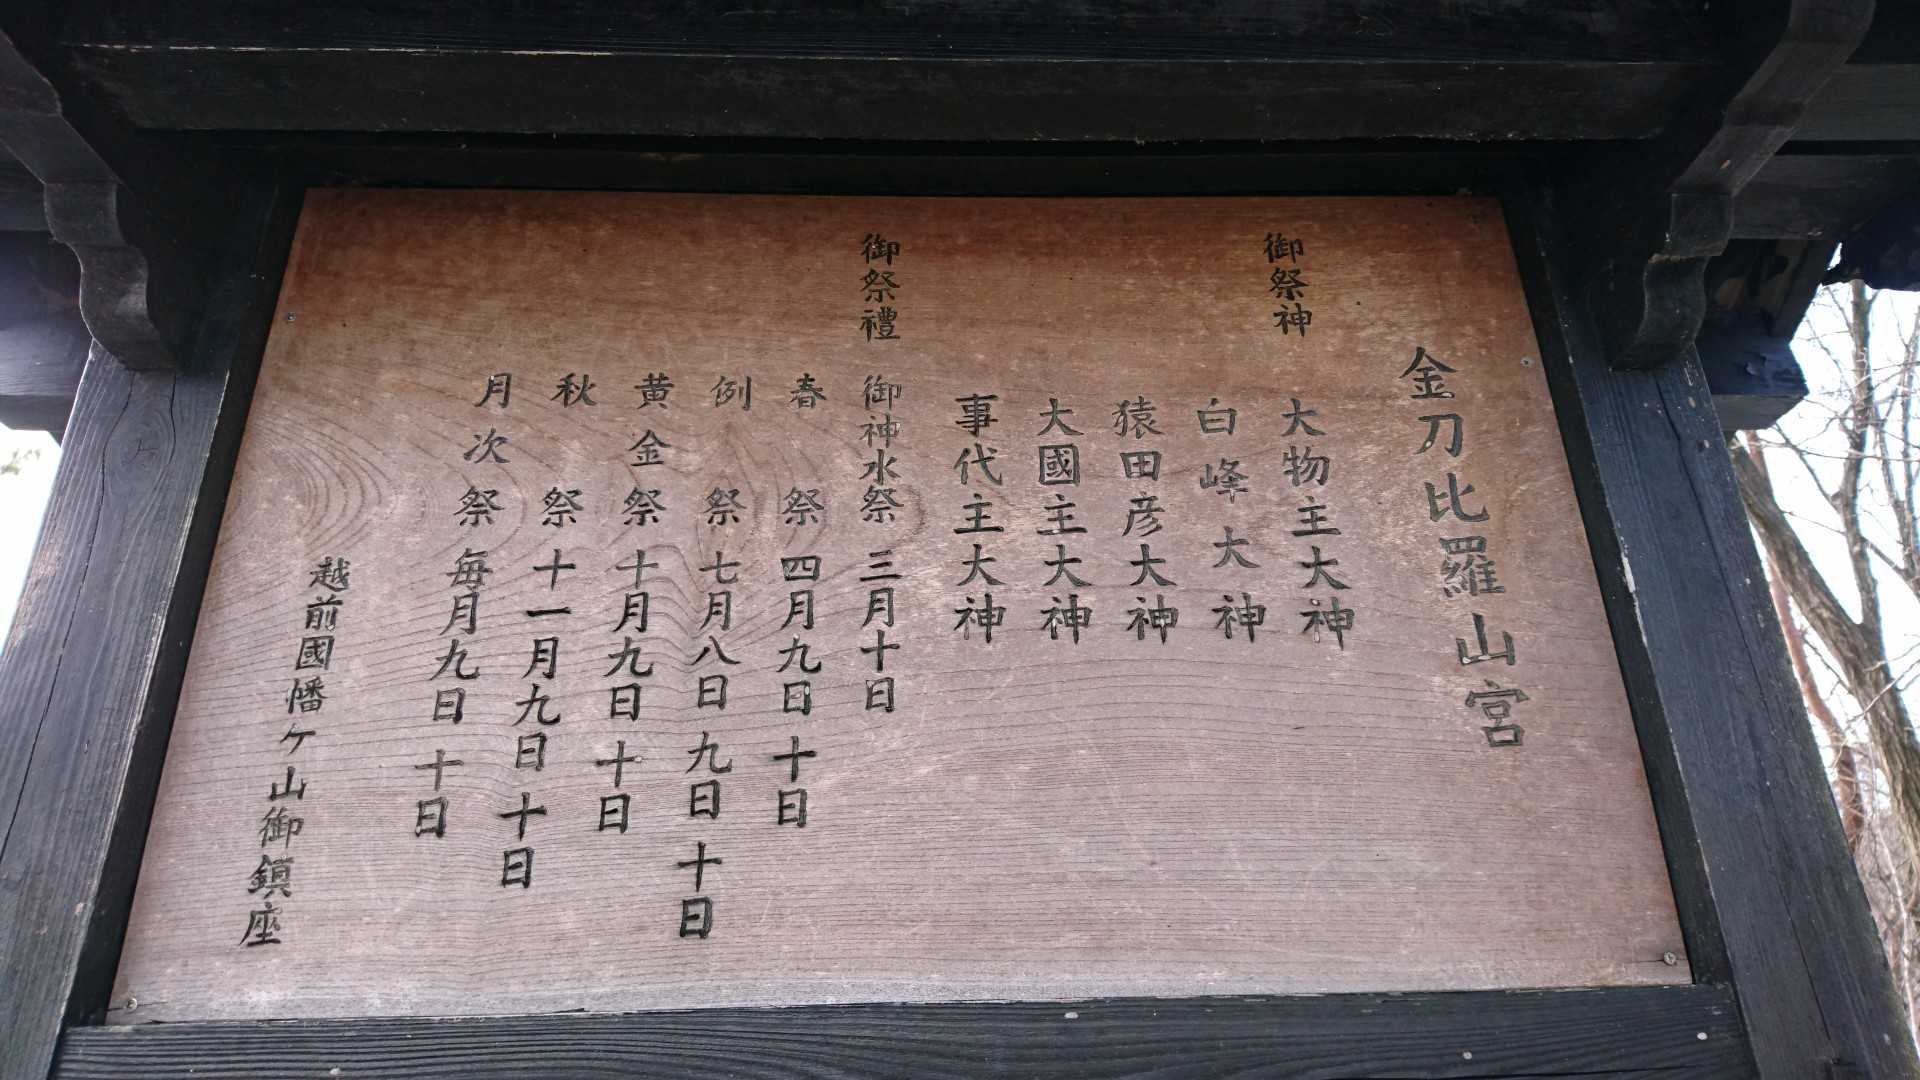 金刀比羅山宮
御祭神
大物主大神
白峰大神
猿田彦大神
大國主大神
事代主大神
御祭禮
御神水祭 三月十日
春祭 四月九日 十日
例祭 七月八日 九日 十日
黄金祭 十月九日 十日
秋祭 十一月九日 十日
月次祭 毎月九日 十日
越前國幡ケ山御鎮座